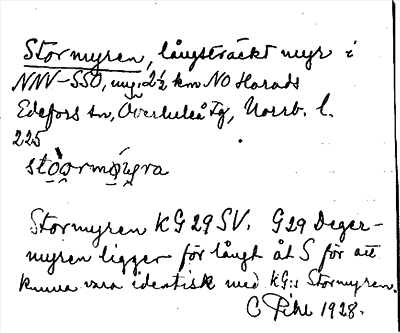 Stormyren, långsträckt myr i
NNV-SSO, ung. 2½ km NO Harads
Edefors sn, Överluleå Tg, Norrb. l.
225
Stormyren KG 29 SV. G 29 Deger-
myren ligger för långt åt S för att
kunna vara identisk med KG:s Stormyren.
C Pihl 1928.